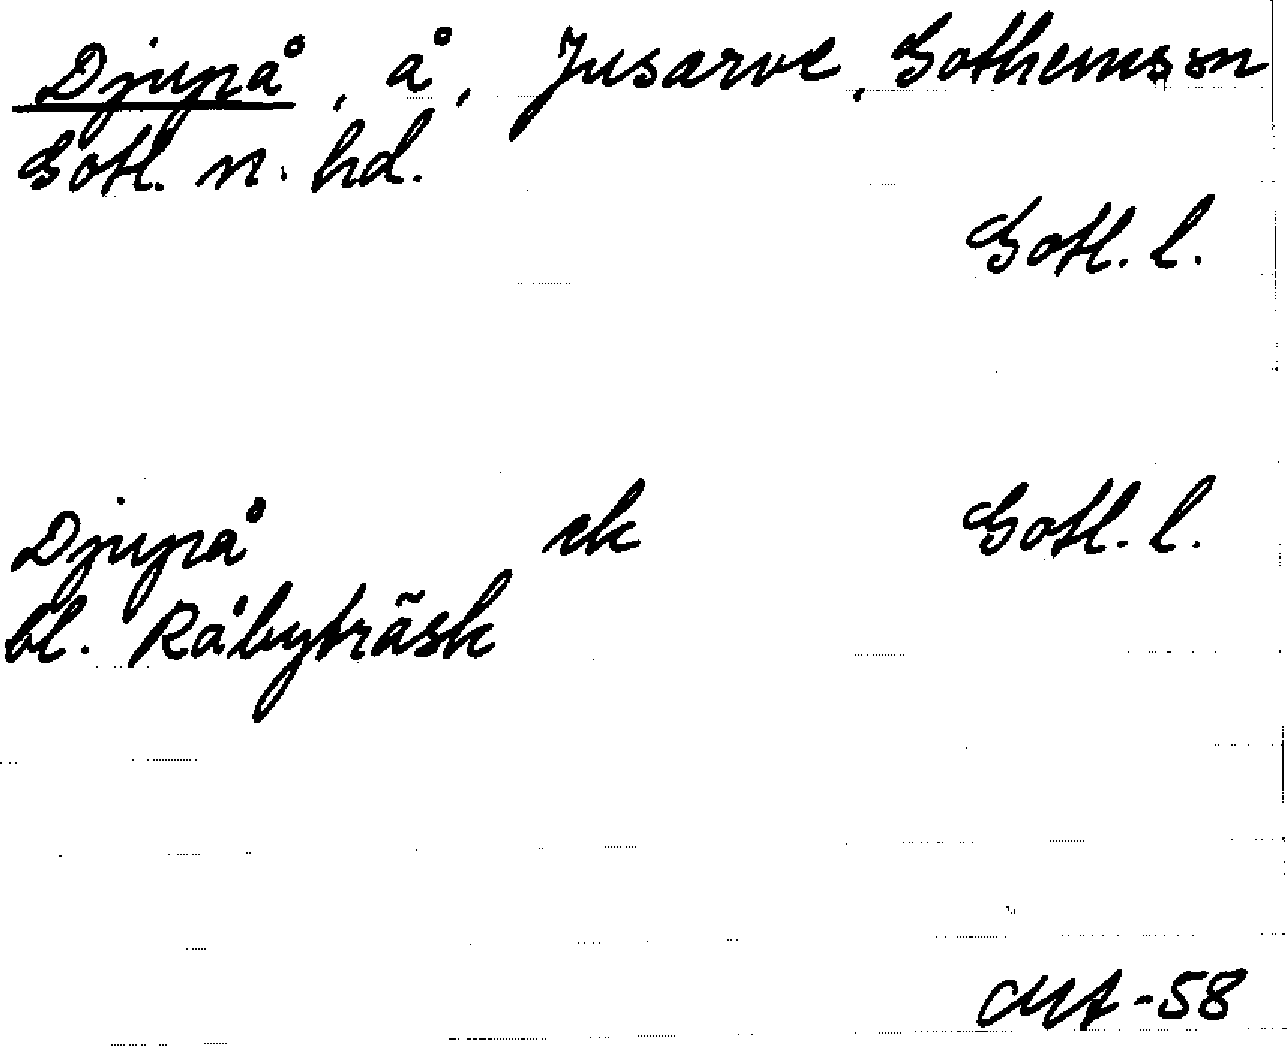 Djupå, å, Jusarve, Gothems sn
Gotl. n. hd.
Gotl. l.
Djupå ek Gotl. l.
bl. Råbyträsk
-58